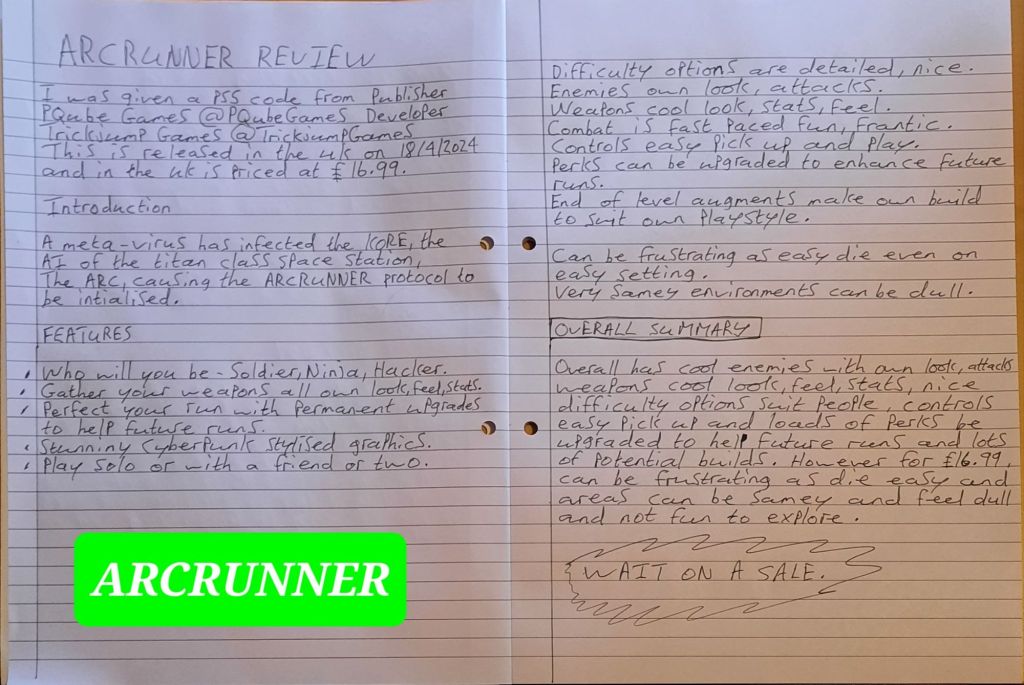 ARCRUNNER REVIEW
I was given a PS5 code from Publisher
PQube Games @PQubeGames Developer
Trickjump Games @TrickjumpGames
This is released in the uk on 18/4/2024
and in the uk is priced at £16.99.
Introduction
A meta-virus has infected the KORE, the
AI of the titan class space station,
The ARC, causing the ARCRUNNER protocol to
be intialised.
FEATURES
Who will you be - Soldier, Ninja, Hacker.
Gather your weapons all own look, feel, stats.
Perfect your run with permanent upgrades
to help future runs.
Stunning Cyberpunk stylised graphics.
Play solo or with a friend or two.
ARCRUNNER
Difficulty options are detailed, nice.
Enemies own look, attacks.
Weapons cool look, stats, feel.
Combat is fast paced fun, frantic.
Controls easy pick up and play.
Perks can be upgraded to enhance future
runs.
End of level augments make own build
to suit own playstyle.
Can be frustrating as easy die even on
easy setting.
Very samey environments can be dull.
OVERALL SUMMARY
Overall has cool enemies with own look, attacks
weapons cool look, feel, stats, nice
difficulty options suit people, controls
easy pick up and loads of perks be
upgraded to help future runs and lots
of potential builds. However for £16.99,
can be frustrating as die easy and
areas can be samey and feel dull
and not fun to explore.
WAIT ON A SALE.